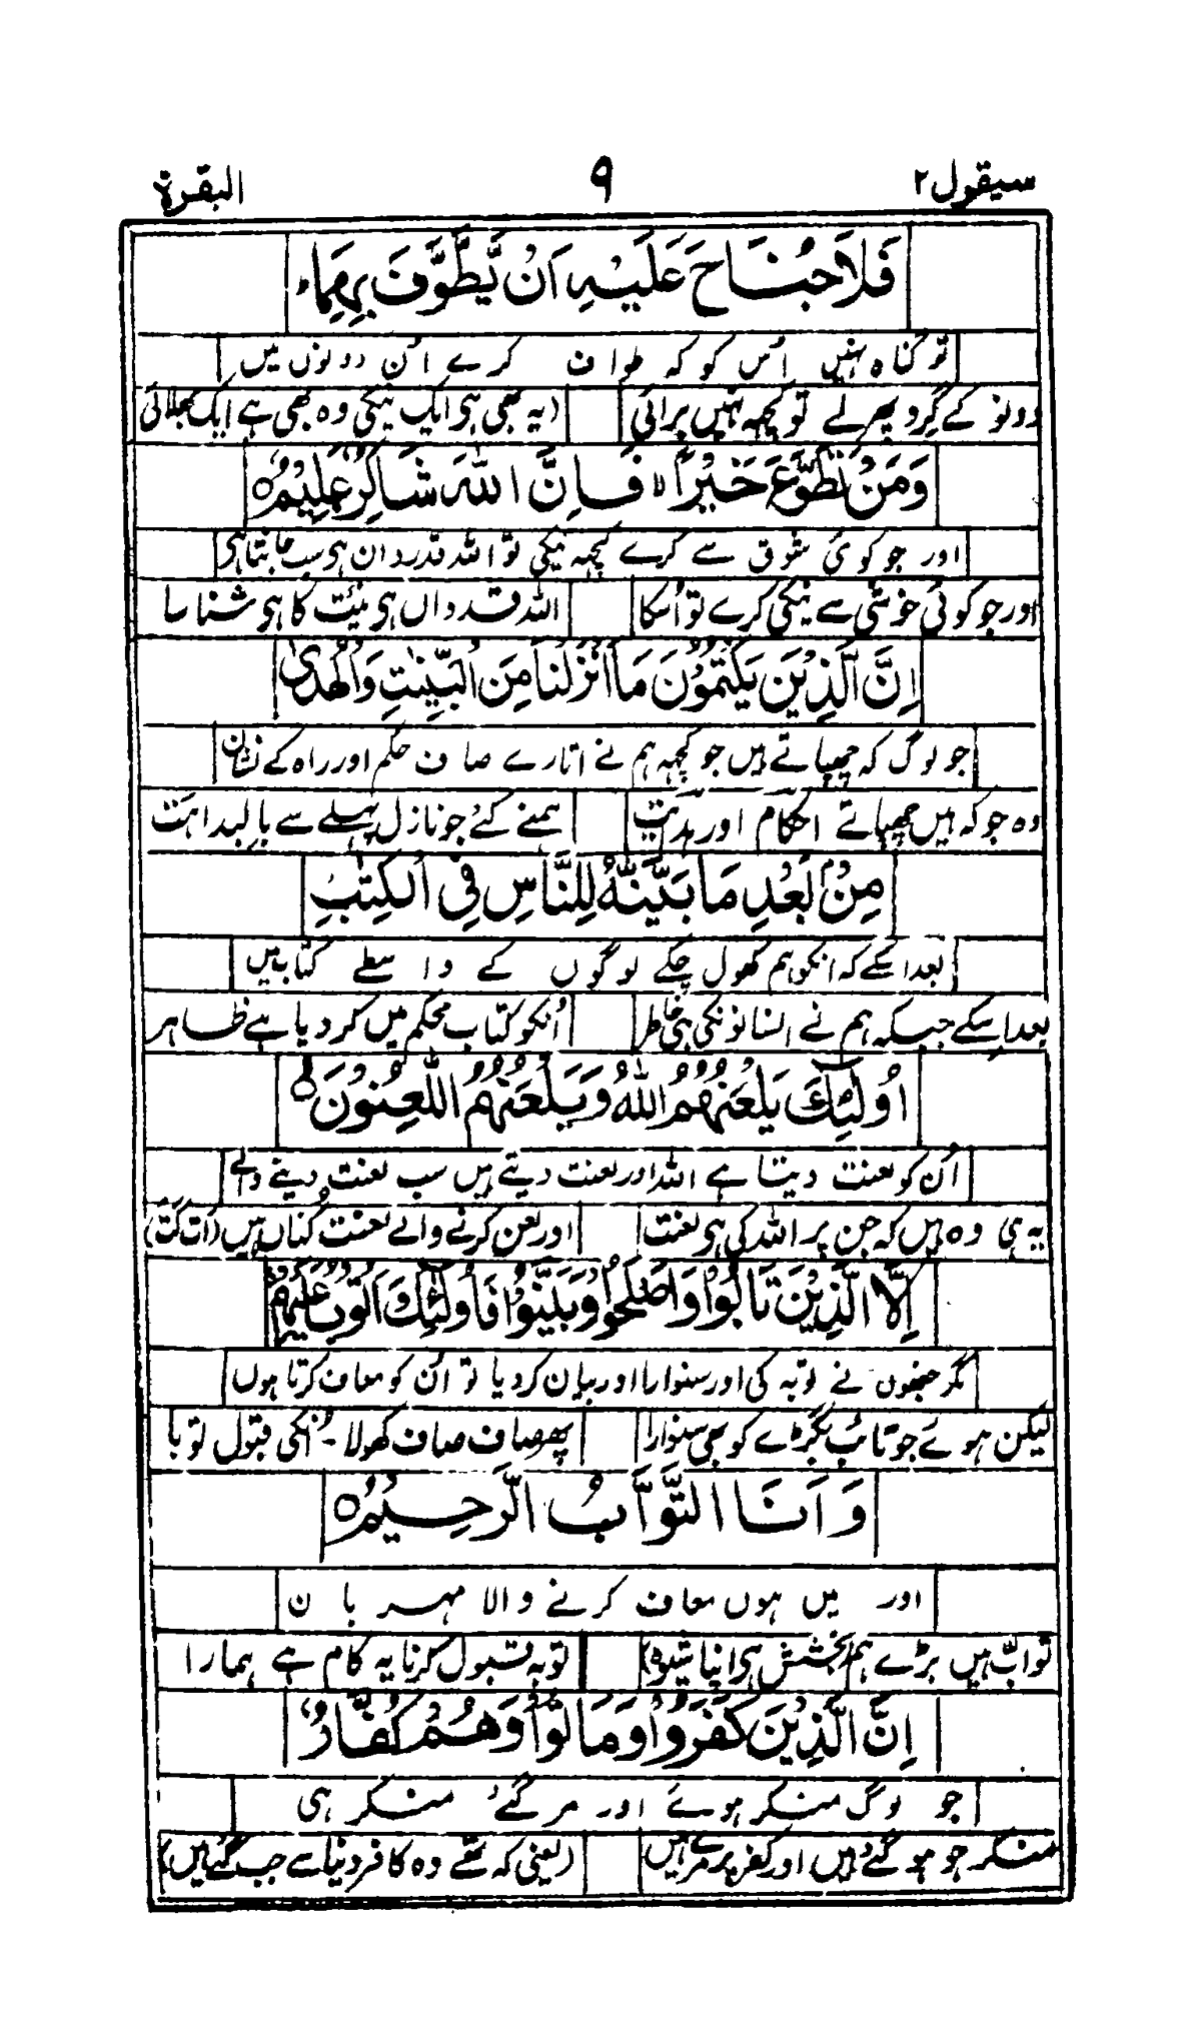 سيقول ٢ ٩ البقرة
فَلَا جُنَاحَ عَلَيْهِ اَنْ يَّطَّوَّفَ بِهِمَاء
تو گناہ نہیں اُس کو کہ طواف کرے اُن دونوں میں
دونو کے گرد پھر لے تو کچھہ نہیں برائی (یہ بھی ہی ایک نیکی وہ بھی ہے ایک بھلائی
وَمَنْ تَطَوَّعَ خَيْرًا لا فَاِنَّ اللّٰهَ شَاكِرٌ عَلِيْمٌ ○
اور جو کوئی شوق سے کرے کچھہ نیکی تو اللہ قدردان ہی سب جانتا ہی
اور جو کوئی خوشی سے نیکی کرے تو اُسکا اللہ قدرداں ہی نیئت کا ہی شناسا
اِنَّ الَّذِيْنَ يَكْتُمُوْنَ مَا اَنْزَلْنَا مِنَ الْبَيِّنٰتِ وَالْهُدٰى
جو لوگ کہ چھپاتے ہیں جو کچھہ ہم نے اتارے صاف حکم اور راہ کے نشان
وہ جو کہ ہیں چھپاتے احکام اور ہدیت ہمنے کئے جو نازل پہلے سے بالبداہت
مِنْۢ بَعْدِ مَا بَيَّنّٰهُ لِلنَّاسِ فِي الْكِتٰبِ
بعد اسکے کہ انکو ہم کھول چکے لوگوں کے واسطے کتاب میں
بعد اسکے جبکہ ہم نے انسانونکی ہی خاطر اُنکو کتاب محکم میں کر دیا ہے ظاہر
اُولٰٓئِكَ يَلْعَنُهُمُ اللّٰهُ وَيَلْعَنُهُمُ اللّٰعِنُوْنَ ○
اُن کو لعنت دیتا ہے اللہ اور لعنت دیتے ہیں سب لعنت دینے والے
یہ ہی وہ ہیں کہ جن پر اللہ کی ہی لعنت اور لعن کرنے والے لعنت کُناں ہیں
اِلَّا الَّذِيْنَ تَابُوْا وَاَصْلَحُوْا وَبَيَّنُوْا فَاُولٰٓئِكَ اَتُوْبُ عَلَيْهِمْ
مگر جنھوں نے توبہ کی اور سنوارا اور بیان کر دیا تو اُن کو معاف کرتا ہوں
لیکن ہوئے جو تائب بگڑے کو بھی سنوارا پھر صاف صاف کھولا ۔ اُنکی قبول توبا
وَاَنَا التَّوَّابُ الرَّحِيْمُ ○
اور میں ہوں معاف کرنے والا مہربان
توابّ ہیں بڑے ہم (بخشش ہی اپنا شیوہ) توبہ قبول کرنا یہ کام ہے ہمارا
اِنَّ الَّذِيْنَ كَفَرُوْا وَمَاتُوْا وَهُمْ كُفَّارٌ
جو لوگ منکر ہوئے اور مر گئے منکر ہی
منکر جو ہو گئے ہیں اور کفر پر مرے ہیں (یعنی کہ تھے وہ کافر دنیا سے جب گئے ہیں)